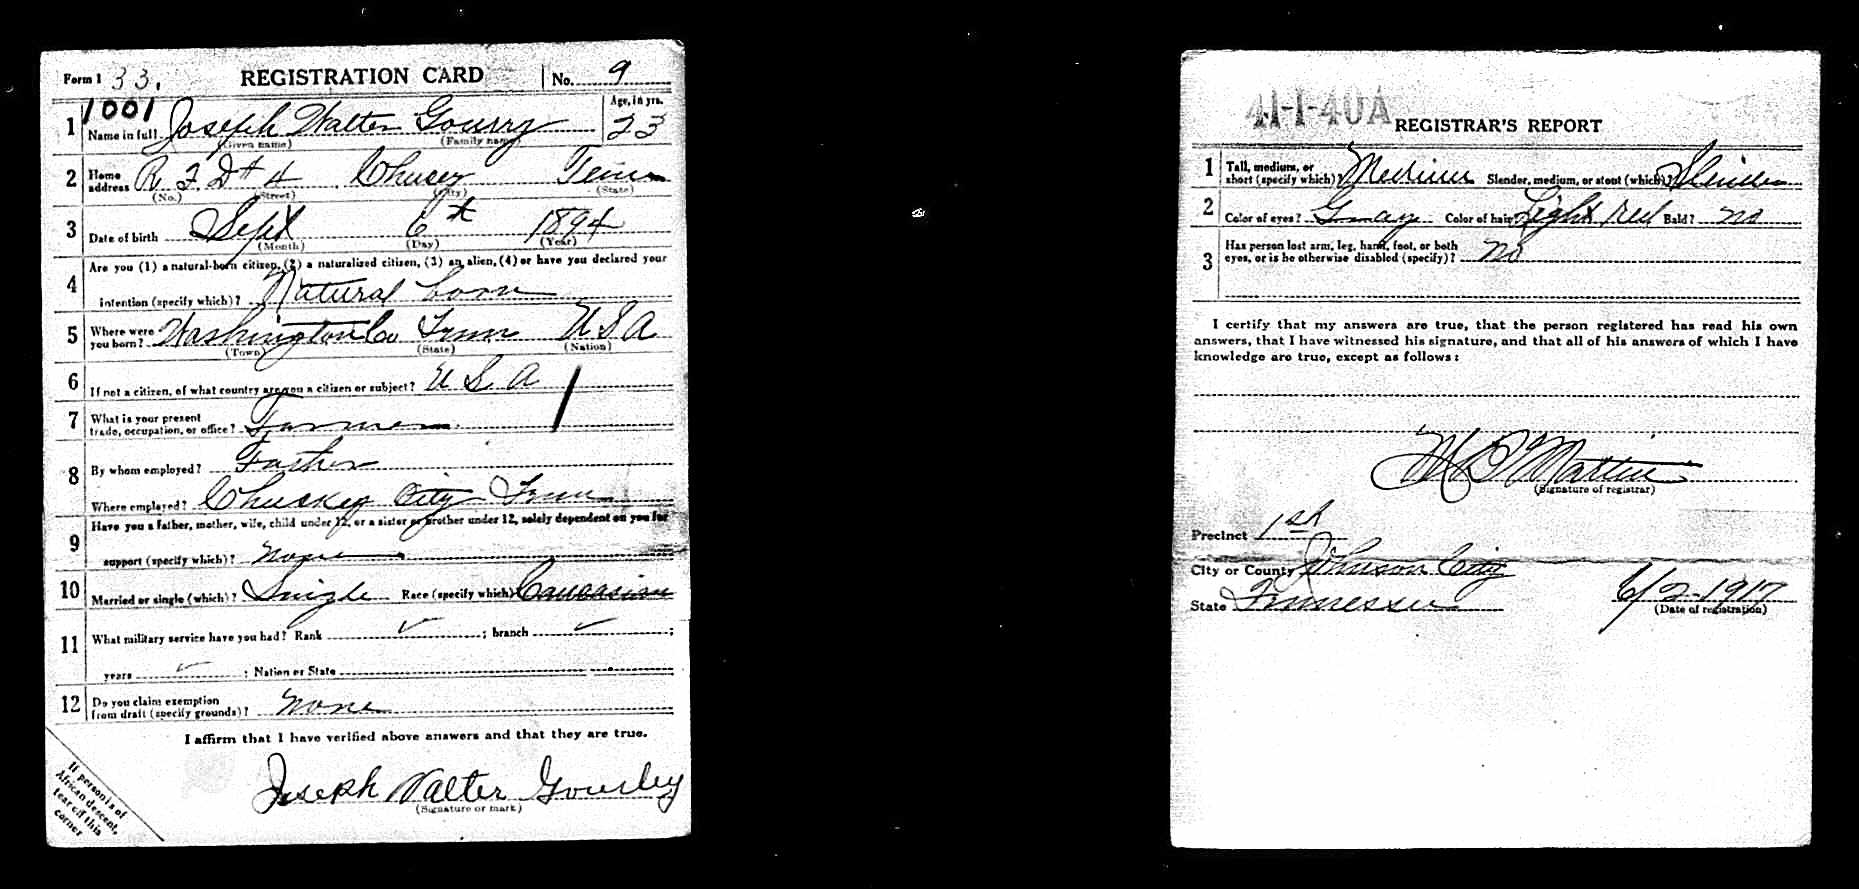 Form 1 33. REGISTRATION CARD No. 9
1001
1 Name in full Joseph Walter Gourry Age, in yrs. 23
(Given name) (Family name)
2 Home address R F D # 4 Chucey Tenn
(No.) (Street) (City) (State)
3 Date of birth Sept 6th 1894
(Month) (Day) (Year)
4 Are you (1) a natural-born citizen, (2) a naturalized citizen, (3) an alien, (4) or have you declared your
intention (specify which)? Natural born
5 Where were you born? Washington Co Tenn U S A
(Town) (State) (Nation)
6 If not a citizen, of what country are you a citizen or subject? U S A
7 What is your present
trade, occupation, or office? Farmer
8 By whom employed? Father
Where employed? Chuckey City Tenn
9 Have you a father, mother, wife, child under 12, or a sister or brother under 12, solely dependent on you for
support (specify which)? None
10 Married or single (which)? Single Race (specify which)? Caucasian
11 What military service have you had? Rank ; branch ;
years ; Nation or State
12 Do you claim exemption
from draft (specify grounds)? None
I affirm that I have verified above answers and that they are true.
Joseph Walter Gourley
(Signature or mark)
If person is of
African descent,
tear off this
corner
41-1-40A REGISTRAR'S REPORT
1 Tall, medium, or
short (specify which)? Medium Slender, medium, or stout (which)? Slender
2 Color of eyes? Gray Color of hair? Light red Bald? No
3 Has person lost arm, leg, hand, foot, or both
eyes, or is he otherwise disabled (specify)? No
I certify that my answers are true, that the person registered has read his own
answers, that I have witnessed his signature, and that all of his answers of which I have
knowledge are true, except as follows:
Martin
(Signature of registrar)
Precinct 1st
City or County Johnson City
State Tennessee 6/2-1917
(Date of registration)